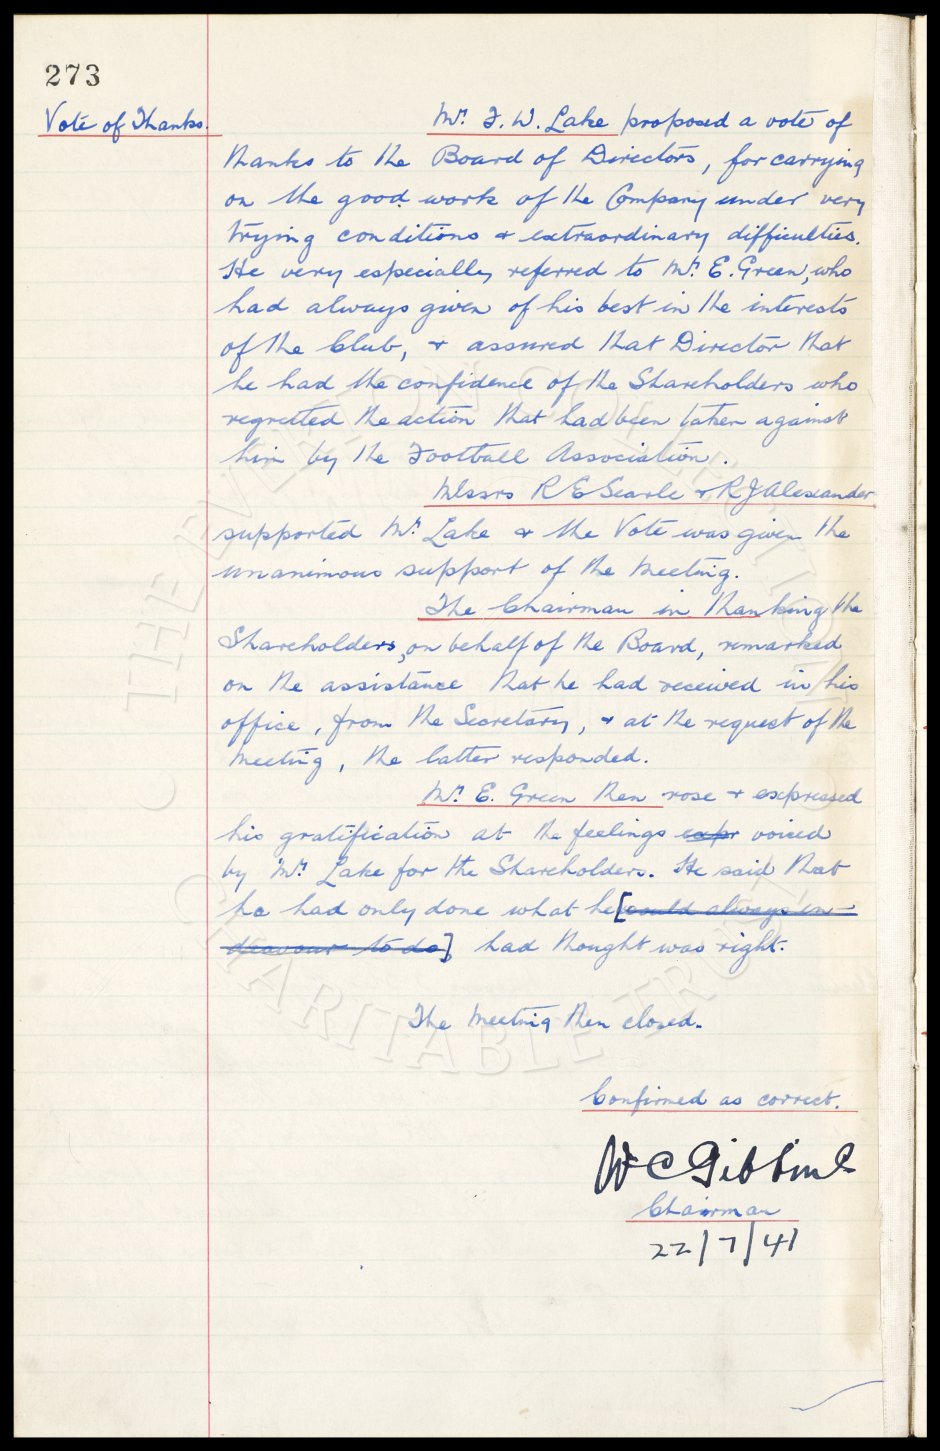 273
Vote of Thanks.
Mr. F. W. Lake proposed a vote of
thanks to the Board of Directors, for carrying
on the good work of the Company under very
trying conditions & extraordinary difficulties.
He very especially referred to Mr. E. Green, who
had always given of his best in the interests
of the Club, & assured that Director that
he had the confidence of the Shareholders who
regretted the action that had been taken against
him by the Football Association.
Messrs R E Searle & R J Alexander
supported Mr. Lake & the Vote was given the
unanimous support of the Meeting.
The Chairman in thanking the
Shareholders, on behalf of the Board, remarked
on the assistance that he had received in his
office, from the Secretary, & at the request of the
Meeting, the latter responded.
Mr. E. Green then rose & expressed
his gratification at the feelings expr voiced
by Mr. Lake for the Shareholders. He said that
he had only done what he [could always in
deavour to do] had thought was right.
The Meeting then closed.
Confirmed as correct.
W C Gibbins
Chairman
22/7/41
THE EVERTON COLLECTION
CHARITABLE TRUST